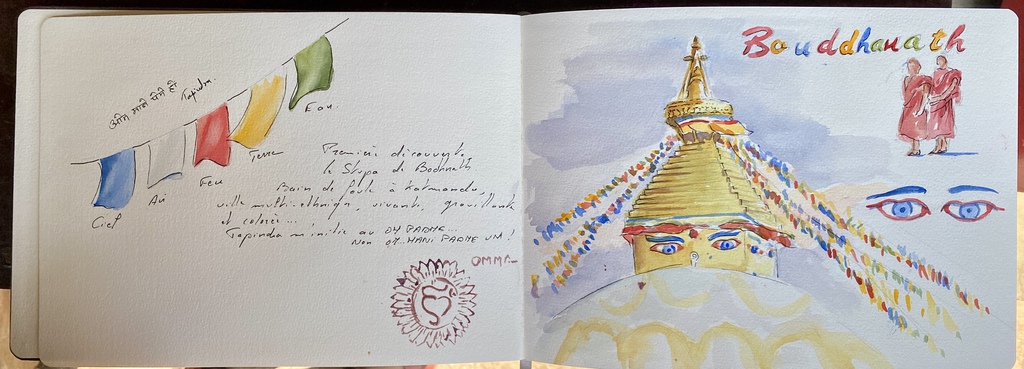 ओम माने पेमे हों
Tapindra.
Eau.
Terre
Feu
Air
Ciel
Première découverte
le Stupa de Bodnath
Bain de foule à Katmandu,
ville multi-ethnique, vivante, grouillante
et colorée...
Tapindra m'initie au OM PADME...
Non OM..MANI PADME UM!
OMMM
Bouddhanath